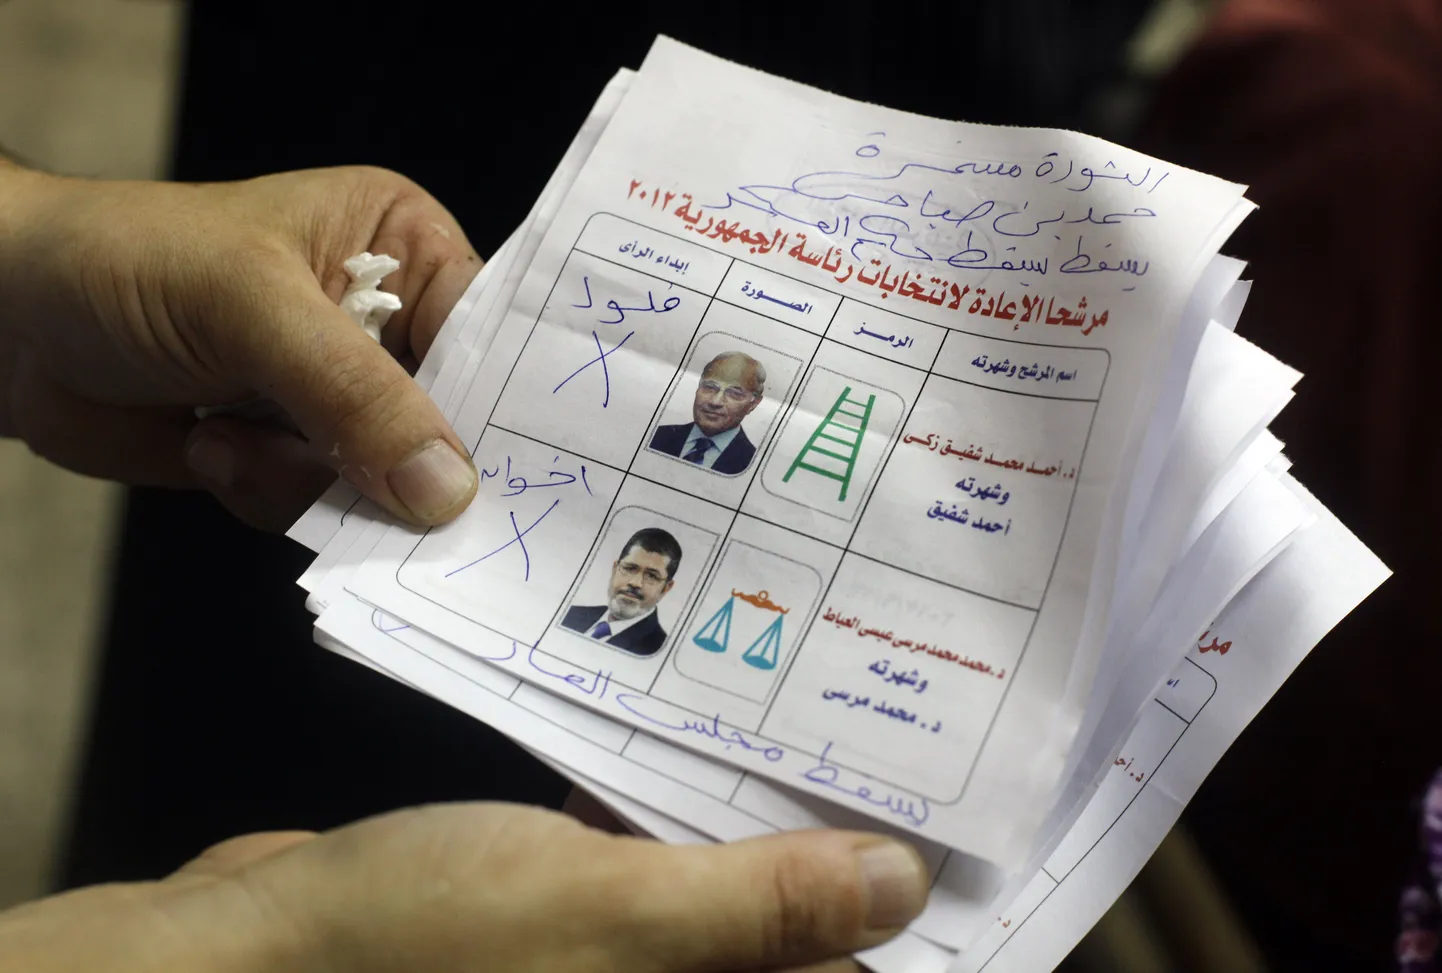 الثورة مستمرة
حمدين صباحى
يسقط يسقط حكم العسكر
مرشحا الإعادة لانتخابات رئاسة الجمهورية ٢٠١٢
اسم المرشح وشهرته
الرمز
الصورة
إبداء الرأى
د. أحمد محمد شفيق زكى
وشهرته
أحمد شفيق
فلول
X
د. محمد محمد مرسى عيسى العياط
وشهرته
د. محمد مرسى
اخوان
X
يسقط مجلس العار